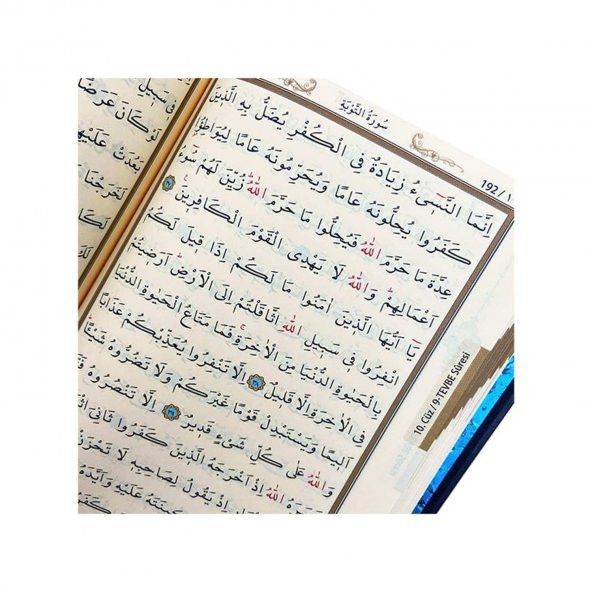 سُورَةُ التَّوْبَةِ
192/1
اِنَّمَا النَّس۪ٓيءُ زِيَادَةٌ فِي الْكُفْرِ يُضَلُّ بِهِ الَّذ۪ينَ
كَفَرُوا يُحِلُّونَهُ عَامًا وَيُحَرِّمُونَهُ عَامًا لِيُوَاطِؤُ۫ا
عِدَّةَ مَا حَرَّمَ اللّٰهُ فَيُحِلُّوا مَا حَرَّمَ اللّٰهُۜ زُيِّنَ لَهُمْ سُٓوءُ
اَعْمَالِهِمْۜ وَاللّٰهُ لَا يَهْدِي الْقَوْمَ الْكَافِر۪ينَ
يَٓا اَيُّهَا الَّذ۪ينَ اٰمَنُوا مَا لَكُمْ اِذَا ق۪يلَ لَكُمُ
انْفِرُوا ف۪ي سَب۪يلِ اللّٰهِ اثَّاقَلْتُمْ اِلَى الْاَرْضِۜ اَرَض۪يتُمْ
بِالْحَيٰوةِ الدُّنْيَا مِنَ الْاٰخِرَةِۚ فَمَا مَتَاعُ الْحَيٰوةِ الدُّنْيَا
فِي الْاٰخِرَةِ اِلَّا قَل۪يلٌ اِلَّا تَنْفِرُوا يُعَذِّبْكُمْ عَذَابًا
اَل۪يمًا وَيَسْتَبْدِلْ قَوْمًا غَيْرَكُمْ وَلَا تَضُرُّوهُ شَيْـًٔاۜ
وَاللّٰهُ عَلٰى كُلِّ شَيْءٍ قَد۪يرٌ اِلَّا تَنْصُرُوهُ
اللّٰهُ اِذْ اَخْرَجَهُ الَّذ۪ينَ كَفَرُوا ثَانِيَ
اِذْ يَقُولُ لِصَاحِبِه۪ لَا تَحْزَنْ
عَلَيْهِ وَاَيَّدَهُ
10. Cüz / 9-TEVBE Sûresi
ف۪ي سَب۪يلِ
لَوْ كَانَ عَرَضًا
بَعُدَتْ عَلَيْهِمُ